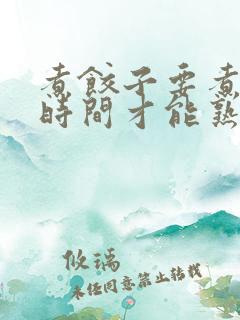 煮餃子要煮
時間才能熟
攸瑀
未任同意禁止转载